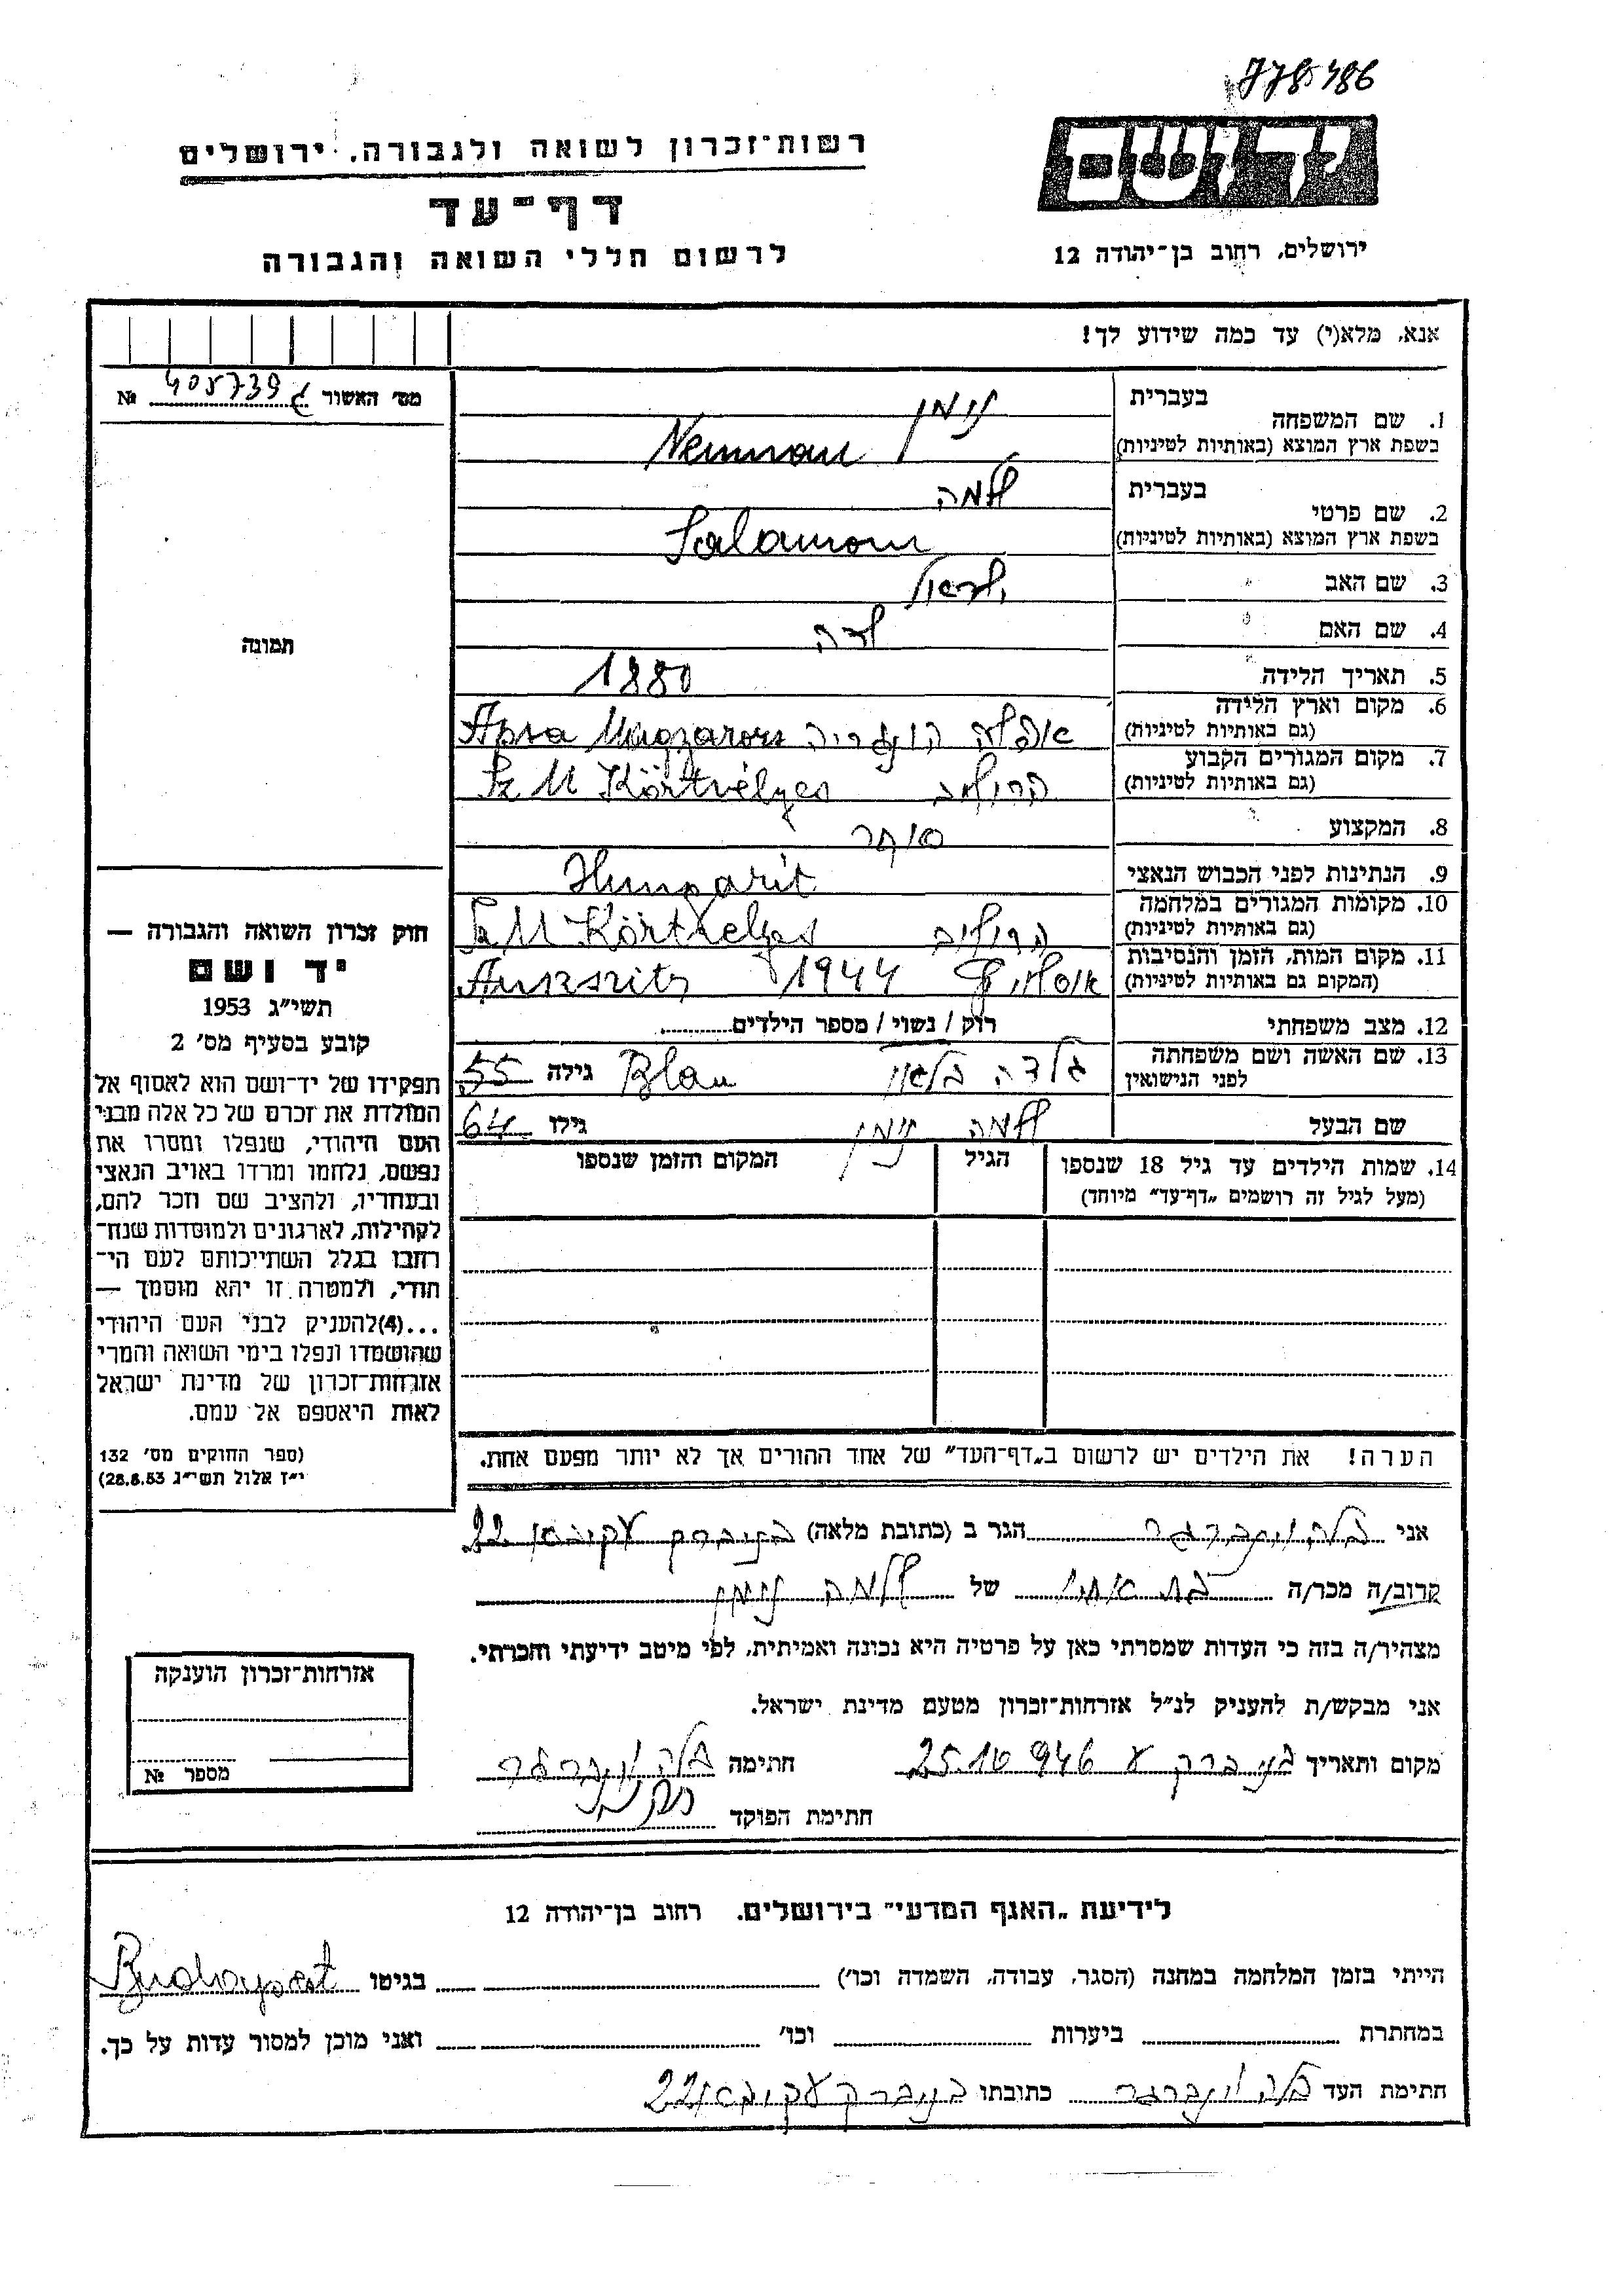 778486
רשות־זכרון לשואה ולגבורה, ירושלים
יד ושם
דף־עד
לרשום חללי השואה והגבורה
ירושלים, רחוב בן־יהודה 12
אנא, מלא(י) עד כמה שידוע לך!
מס׳ האשור 405739 №
1. שם המשפחה
בעברית נוימן
בשפת ארץ המוצא (באותיות לטיניות) Neuman
2. שם פרטי
בעברית שלמה
בשפת ארץ המוצא (באותיות לטיניות) Salamon
3. שם האב ישראל
4. שם האם שרה
תמונה
5. תאריך הלידה 1880
6. מקום וארץ הלידה
(גם באותיות לטיניות) הונגריה Apsa
7. מקום המגורים הקבוע
(גם באותיות לטיניות) Sz M Körtvélyes
8. המקצוע סוחר
9. הנתינות לפני הכבוש הנאצי Hungarit
10. מקומות המגורים במלחמה
(גם באותיות לטיניות) Sz M Körtvelyes
11. מקום המות, הזמן והנסיבות
(המקום גם באותיות לטיניות) 1944
12. מצב משפחתי רווק / נשוי / מספר הילדים
13. שם האשה ושם משפחתה
לפני הנישואין בלאו Blau גילה 55
שם הבעל שלמה נוימן גילו 64
14. שמות הילדים עד גיל 18 שנספו הגיל המקום והזמן שנספו
(מעל לגיל זה רושמים „דף־עד״ מיוחד)
חוק זכרון השואה והגבורה —
יד ושם
תשי״ג 1953
קובע בסעיף מס׳ 2
תפקידו של יד־ושם הוא לאסוף אל
המולדת את זכרם של כל אלה מבני
העם היהודי, שנפלו ומסרו את
נפשם, נלחמו ומרדו באויב הנאצי
ובעוזריו, ולהציב שם וזכר להם,
לקהילות, לארגונים ולמוסדות שנח־
רבו בגלל השתייכותם לעם הי־
הודי, ולמטרה זו יהא מוסמך —
...(4) להעניק לבני העם היהודי
שהושמדו ונפלו בימי השואה והמרי
אזרחות־זכרון של מדינת ישראל
לאות היאספם אל עמם.
(ספר החוקים מס׳ 132
י״ז אלול תשי״ג 28.8.53)
הערה! את הילדים יש לרשום ב„דף־העד״ של אחד ההורים אך לא יותר מפעם אחת.
אני בלה וינברגר הגר ב (כתובת מלאה) בני ברק 22
קרוב/ה מכר/ה בת של שלמה נוימן
מצהיר/ה בזה כי העדות שמסרתי כאן על פרטיה היא נכונה ואמיתית, לפי מיטב ידיעתי והכרתי.
אני מבקש/ת להעניק לנ״ל אזרחות־זכרון מטעם מדינת ישראל.
מקום ותאריך בני ברק 25.10 חתימה בלה וינברגר
חתימת הפוקד
אזרחות־זכרון הוענקה
מספר №
לידיעת „האגף המדעי״ בירושלים, רחוב בן־יהודה 12
הייתי בזמן המלחמה במחנה (הסגר, עבודה, השמדה וכו׳) בגיטו Budapest
במחתרת ביערות וכו׳ ואני מוכן למסור עדות על כך.
חתימת העד בלה וינברגר כתובתו בני ברק 22